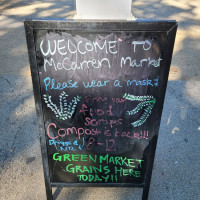 WELCOME TO
McCarren Market
Please wear a mask!
food
scraps
Compost is back!!!
8-12
GREENMARKET
GRAINS HERE
TODAY!!